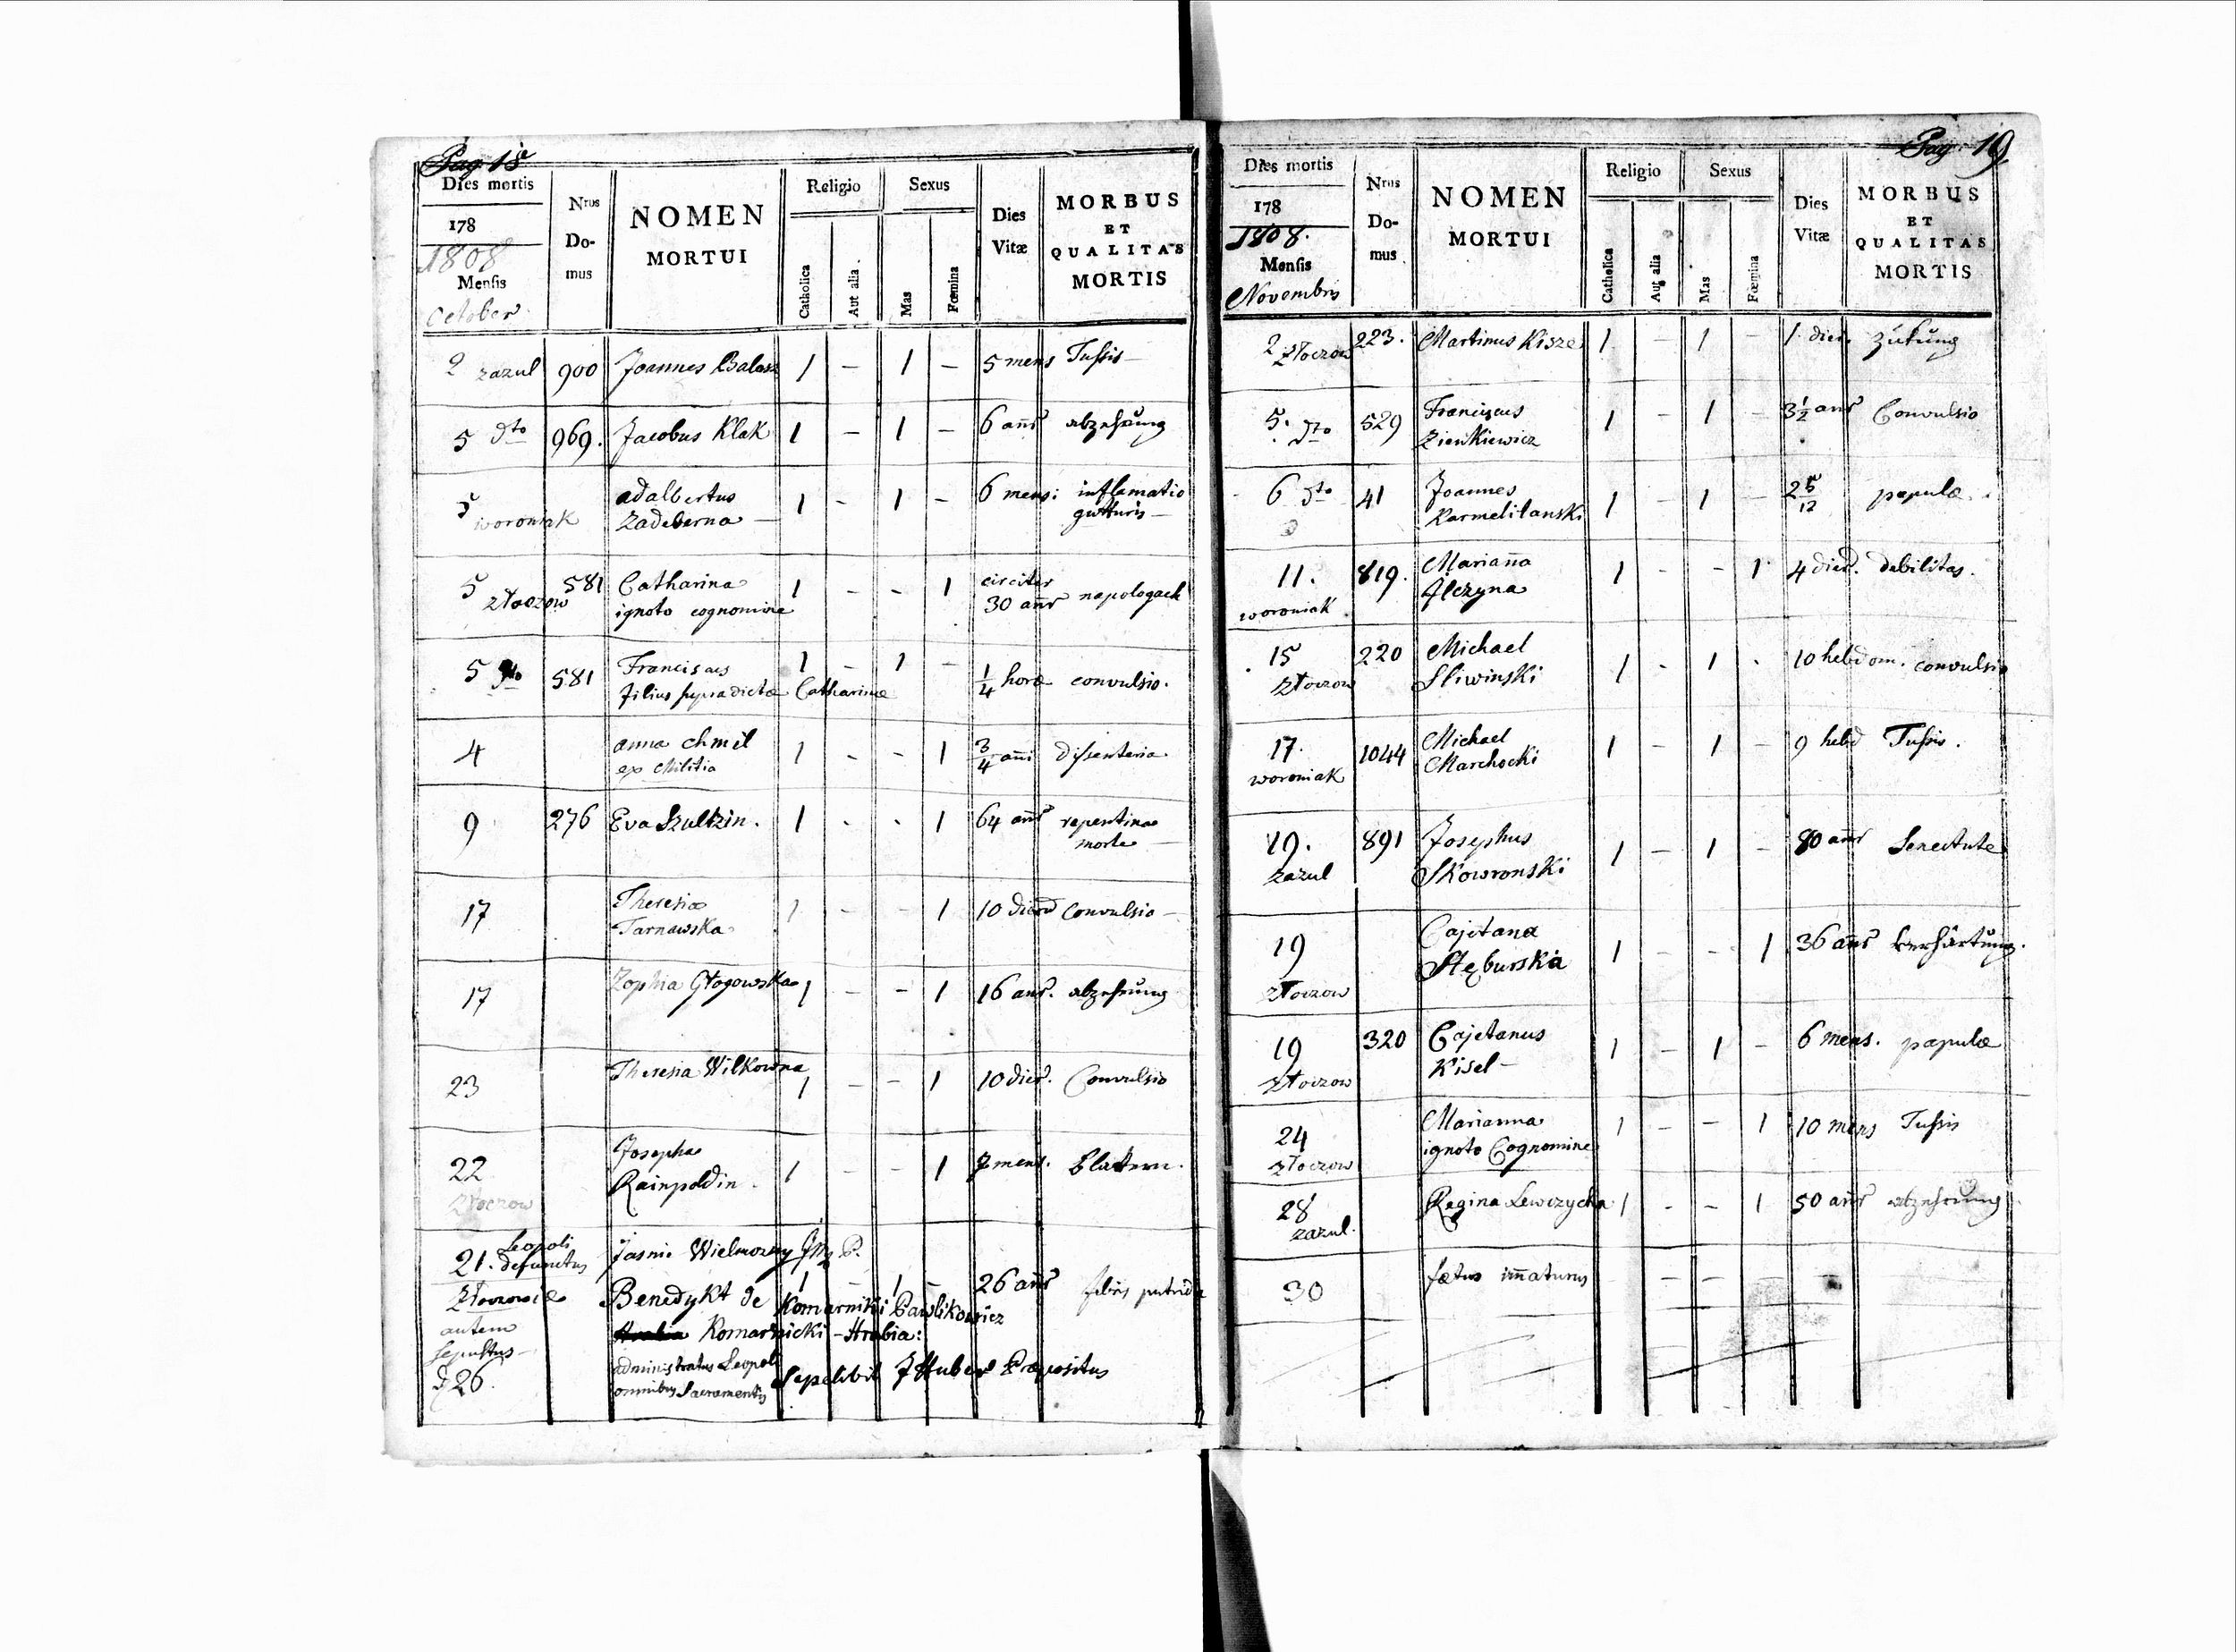 Pag 18
Dies mortis
178
1808
Mensis
October
Nrus
Do-
mus
NOMEN
MORTUI
Religio
Catholica
Aut alia
Sexus
Mas
Fœmina
Dies
Vitæ
MORBUS
ET
QUALITAS
MORTIS
2 zazul 900 Joannes Balasz 1 – 1 – 5 mens Tussis –
5 dto 969. Jacobus Klak 1 – 1 – 6 añs abzehrung
5 woroniak adalbertus 1 – 1 – 6 mens: inflamatio
Zadeberna – gutturis –
5 złoczow 581 Catharina 1 – – 1 circiter
ignoto cognomine 30 añs napologach
5 dto 581 Franciscus 1 – 1 – 1/4 horæ convulsio.
filius supradictæ Catharinæ
4 anna Chmil 1 – – 1 3/4 añi dissenteria
ex Militia
9 276 Eva Szultzin. 1 . . 1 64 añs repentina
morte –
17 Theresia 1 – – 1 10 dierũ Convulsio –
Tarnawska
17 Zophia Głogowska 1 – – 1 16 ans. abzehrung
23 Theresia Wilkowna 1 – – 1 10 dier. Convulsio
22 Josepha 1 – – 1 7 mens. blattern.
złoczow Rainpoldin
21. Leopoli Jasnie Wielmozny P.
defunctus
Złoczoviæ Benedykt de Komarniki Pawlikowicz 1 – 1 – 26 añs febris putrida
autem Komarnicki – Hrabia:
sepultus –
d 26. administratus Leopoli Sepelivit J Huber Præpositus
omnibus Sacramentis
Pag 19
Dies mortis
178
1808.
Mensis
Novembris
Nrus
Do-
mus
NOMEN
MORTUI
Religio
Catholica
Aut alia
Sexus
Mas
Fœmina
Dies
Vitæ
MORBUS
ET
QUALITAS
MORTIS
2 złoczow 223. Martinus Kisze 1 – 1 – 1 dier.
5. dto 529 Franciscus 1 – 1 – 3 1/2 ans Convulsio
Zienkiewicz
6 dto 41 Joannes 1 – 1 – 2 5/12 papulæ
Karmelitanski
11. 819. Marianna 1 – – 1 4 dier. debilitas.
woroniak Ilczyna
15 220 Michael 1 . 1 . 10 hebdom. convulsio
złoczow Sliwinski
17. 1044 Michael 1 – 1 – 9 hebd Tussis.
woroniak Marchocki
19. 891 Josephus 1 – 1 – 80 añs Senectute
zazul Skowronski
19 Cajetana 1 – – 1 36 añs verhärtung.
złoczow Stęburska
19 320 Cajetanus 1 – 1 – 6 mens. papulæ
złoczow Kisel –
24 Marianna 1 – – 1 10 mens Tussis
złoczow ignoto Cognomine
28 Regina Lewczycha 1 – – 1 50 añs abzehrung
zazul.
30 fœtus imaturus – –